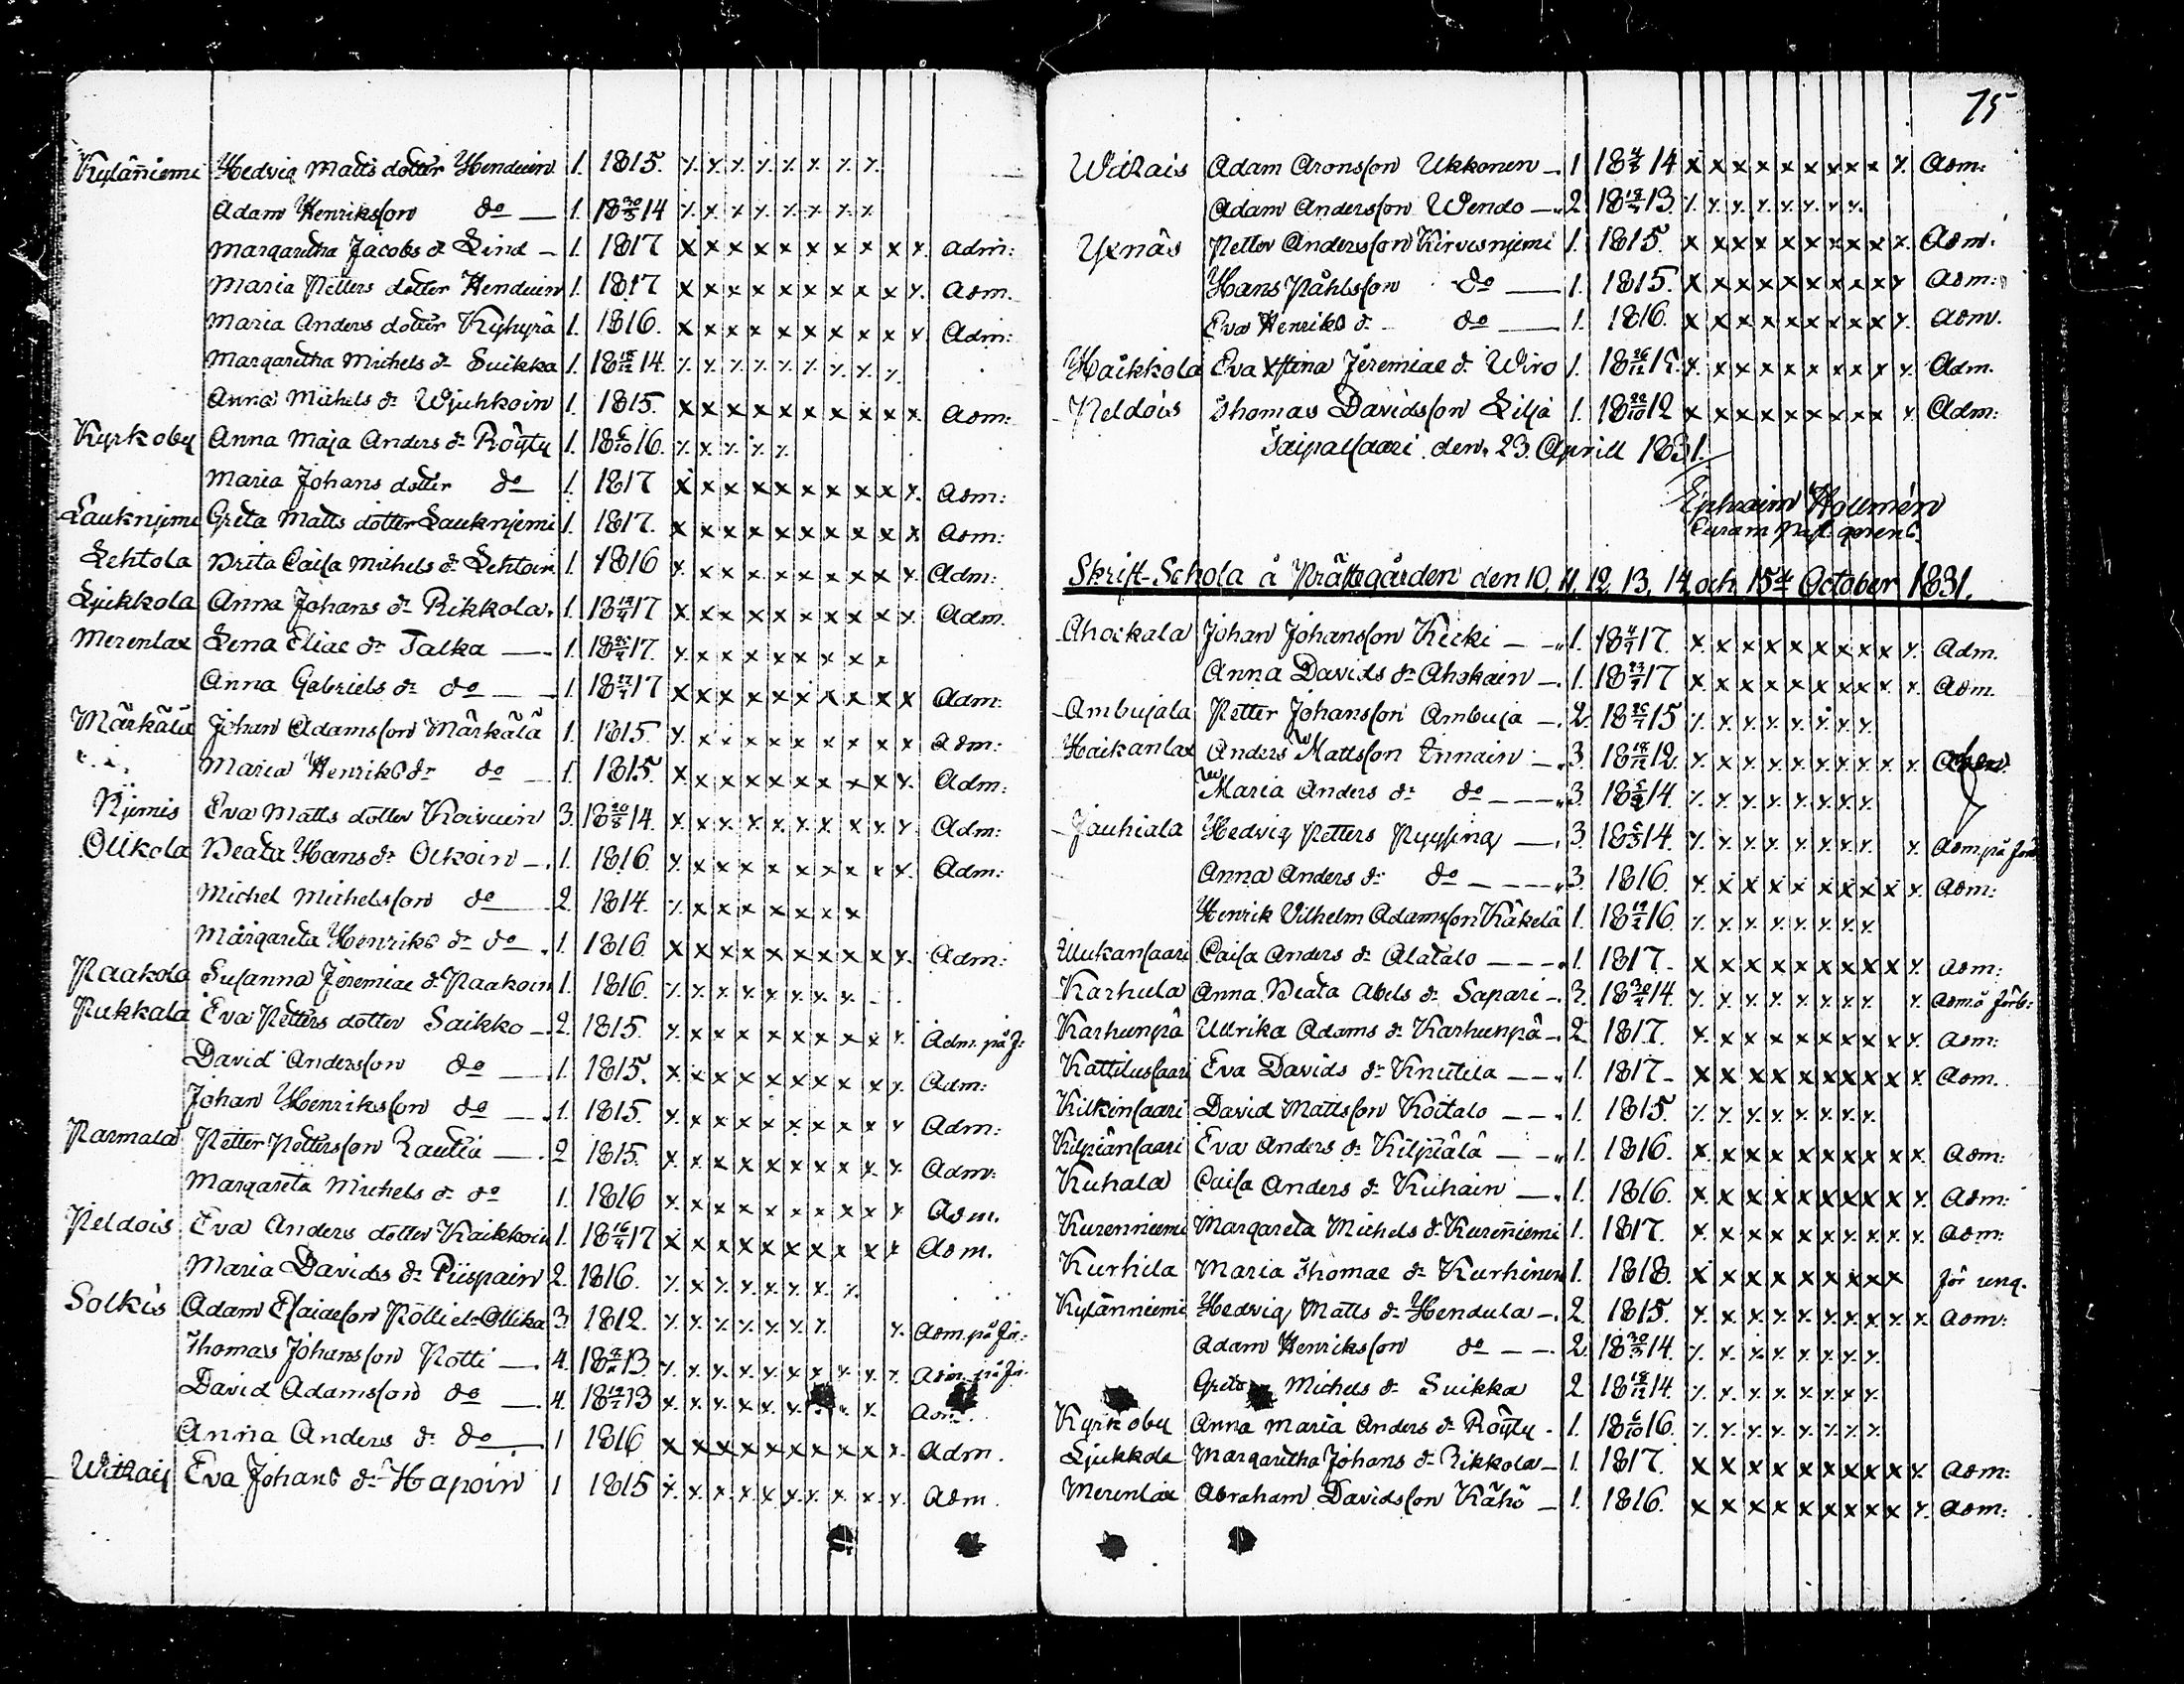 Kylänniemi Hedvig Matts dotter Henduin 1. 1815. ⁒ ⁒ ⁒ ⁒ ⁒ ⁒ ⁒ ⁒
Adam Henriksson do 1. 18 30/5 14 ⁒ x ⁒ ⁒ ⁒ ⁒ ⁒ ⁒
Margaretha Jacobs dr Lind 1. 1817 x x x x x x x x x ⁒ Adm:
Maria Petters dotter Henduin 1. 1817 x x x x x x x x x ⁒ Adm.
Maria Anders dotter Kyhyrä 1. 1816. x x x x x x x x x ⁒ Adm:
Margaretha Michels dr Suikka 1. 18 18/12 14. ⁒ ⁒ ⁒ ⁒ ⁒ ⁒ ⁒ ⁒ ⁒
Anna Michels dr Wjuhkoin 1. 1815. x x x x x x x x x x Adm:
Kyrkoby Anna Maja Anders dr Röyty 1. 18 6/10 16. ⁒ x ⁒ ⁒ ⁒
Maria Johans dotter do 1. 1817 x x x x x x x x x ⁒ Adm:
Lauknjemi Greta Matts dotter Lauknjemi 1. 1817. x x x x x x x x x x Adm:
Lehtola Brita Caisa Michels dr Lehtoin 1. 1816 ⁒ x x x x x x x x ⁒ Adm:
Ljukkola Anna Johans dr Rikkola. 1. 18 17 x x x x x x x x x ⁒ Adm.
Merenlax Lena Eliae dr Talka 1. 18 17. ⁒ x x x x x x x x
Anna Gabriels dr do 1. 18 17 x x x x x x x x x x Adm:
Märkälä Johan Adamsson Märkälä 1. 1815. ⁒ x x x x x x x x x Adm:
Maria Henriks dr do 1. 1815. x x x x x x x x x ⁒ Adm:
Njemis Eva Matts dotter Koivuin 3. 18 20/8 14. x x x x x x x x x ⁒ Adm:
Ollkola Beata Hans dr Olkoin 1. 1816 ⁒ x x x x x x x x ⁒ Adm:
Michel Michelsson do 2. 1814. ⁒ x x x x x x x
Margareta Henriks dr do 1. 1816. x x x x x x x x x ⁒ Adm:
Paakola Susanna Jeremiae dr Paakoin 1. 1816. ⁒ ⁒ ⁒ ⁒ ⁒ ⁒ ⁒ ⁒
Pukkala Eva Petters dotter Saikko 2. 1815. ⁒ x x x x x x x x ⁒ Adm. på J:
David Andersson do 1. 1815. x x x x x x x x x ⁒ Adm:
Johan Henriksson do 1. 1815. ⁒ x x x x x x x x ⁒ Adm:
Parmala Petter Pettersson Rautia 2 1815. x x x x x x x x x ⁒ Adm:
Margareta Michels dr do 1. 1816 x x x x x x x x x ⁒ Adm.
Peldois Eva Anders dotter Kaikkoin 1. 18 16/4 17 x x x x x x x x x x Adm.
Maria Davids dr Piispain 2. 1816. ⁒ x ⁒ ⁒ ⁒ ⁒ ⁒ ⁒
Solkis Adam Esaiasson 3. 1812. ⁒ ⁒ ⁒ ⁒ ⁒ ⁒ ⁒ ⁒ Adm. på Jör:
Thomas Johansson Pötti 4. 18 13. ⁒ ⁒ ⁒ ⁒ ⁒ ⁒ ⁒ ⁒ ⁒ ⁒ Adm. på Jör.
David Adamsson do 4. 18 13 x x x x x x Adm.
Anna Anders dr do 1 1816 x x x x x x x x x ⁒ Adm.
Witsais Eva Johans dr Hapoin 1 1815 ⁒ x x x x x x x x ⁒ Adm.
75
Witsais Adam Aronsson Ukkonen 1. 18 14 x x x x x x x x ⁒ Adm:
Adam Andersson Wendo 2. 18 13. ⁒ ⁒ ⁒ ⁒ ⁒ ⁒ ⁒ ⁒
Yxnäs Petter Andersson Kirvesnjemi 1. 1815. x x x x x x x x x ⁒ Adm.
Hans Påhlsson do 1. 1815. x x x x x x x x x ⁒ Adm:
Eva Henriks dr do 1. 1816. x x x x x x x x x ⁒ Adm.
Haikkola Eva Xstina Jeremiae dr Wiro 1. 18 26/12 15. ⁒ x x x x x x x x ⁒ Adm.
Peldois Thomas Davidsson Lilja 1. 18 29/10 12 x x x x x x x x ⁒ Adm:
Taipalsaari den 23. Aprill 1831.
Ephraim Hollmén
Curam Past. gerens.
Skrift-Schola å Prästegården den 10, 11, 12, 13, 14 och 15de October 1831.
Ahockala Johan Johansson Kecki 1. 18 17. x x x x x x x x x ⁒ Adm.
Anna Davids dr Ahokain 1. 18 23/4 17 x x x x x x x x x ⁒ Adm.
Ambujala Petter Johansson Ambuja 2. 18 15 ⁒ ⁒ ⁒ ⁒ ⁒ ⁒ ⁒ ⁒
Haikanlax Anders Mattsson Innain 3. 18 18/12 12. ⁒ x x x x x x x x ⁒
Maria Anders dr do 3. 18 14. ⁒ ⁒ ⁒ ⁒ ⁒ ⁒ ⁒ ⁒
Jauhiala Hedvig Petters Pyysing 3. 18 14. ⁒ ⁒ ⁒ ⁒ ⁒ ⁒ ⁒ ⁒ ⁒ Adm. på Jörb
Anna Anders dr do 3. 1816. ⁒ x x x x x x x x ⁒ Adm:
Henrik Vilhelm Adamsson Käkelä 1. 18 16. ⁒ ⁒ ⁒ ⁒ ⁒ ⁒ ⁒ ⁒
Illukansaari Caisa Anders dr Alatalo 1. 1817. x x x x x x x x x ⁒ Adm:
Karhula Anna Beata Abels dr Sapari 3. 18 14. ⁒ ⁒ ⁒ ⁒ ⁒ ⁒ ⁒ ⁒ ⁒ Adm. å Jörb:
Karhunpä Ullrika Adams dr Karhunpä 2. 1817. x x x x x x x x x ⁒ Adm:
Kattilussaari Eva Davids dr Knutila 1. 1817 x x x x x x x x x x Adm.
Kilkinsaari David Mattsson Koitalo 1. 1815. ⁒ ⁒ ⁒ ⁒ ⁒ ⁒ ⁒ ⁒
Kilpiänsaari Eva Anders dr Kilpiälä 1. 1816. x x x x x x x x x x Adm:
Kuhala Caisa Anders dr Kuhain 1. 1816. x x x x x x x x x ⁒ Adm:
Kurenniemi Margareta Michels dr Kurenniemi 1. 1817. x x x x x x x x x ⁒ Adm:
Kurhila Maria Thomae dr Kurhinen 1. 1818. x x x x x x x x x för ung.
Kylänniemi Hedvig Matts dr Hendula 2. 1815. ⁒ x x x x x x x x x Adm:
Adam Henriksson do 2. 18 30/5 14. ⁒ ⁒ ⁒ ⁒ ⁒ ⁒ ⁒ ⁒
Greta Michels dr Suikka 2 18 18/12 14. ⁒ ⁒ ⁒ ⁒ ⁒ ⁒ ⁒ ⁒
Kyrkoby Anna Maria Anders dr Röyty 1. 18 6/10 16. ⁒ ⁒ ⁒ ⁒ ⁒ ⁒ ⁒ ⁒
Ljukkola Margaretha Johans dr Rikkola 1. 1817. x x x x x x x x x ⁒ Adm:
Merenlax Abraham Davidsson Kähö 1. 1816. x x x x x x x x x ⁒ Adm: